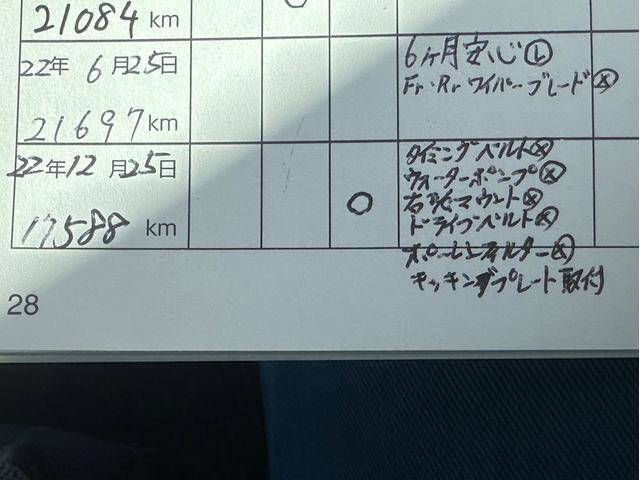 21084 km
22年 6月25日
6ヶ月安心 Ⓛ
Fr・Rr ワイパーブレード ⓧ
21697 km
22年12月25日
タイミングベルト ⓧ
ウォーターポンプ ⓧ
右 マウント ⓧ
17588 km
ドライブベルト ⓧ
ポーレンフィルター ⓧ
キッキングプレート取付
28